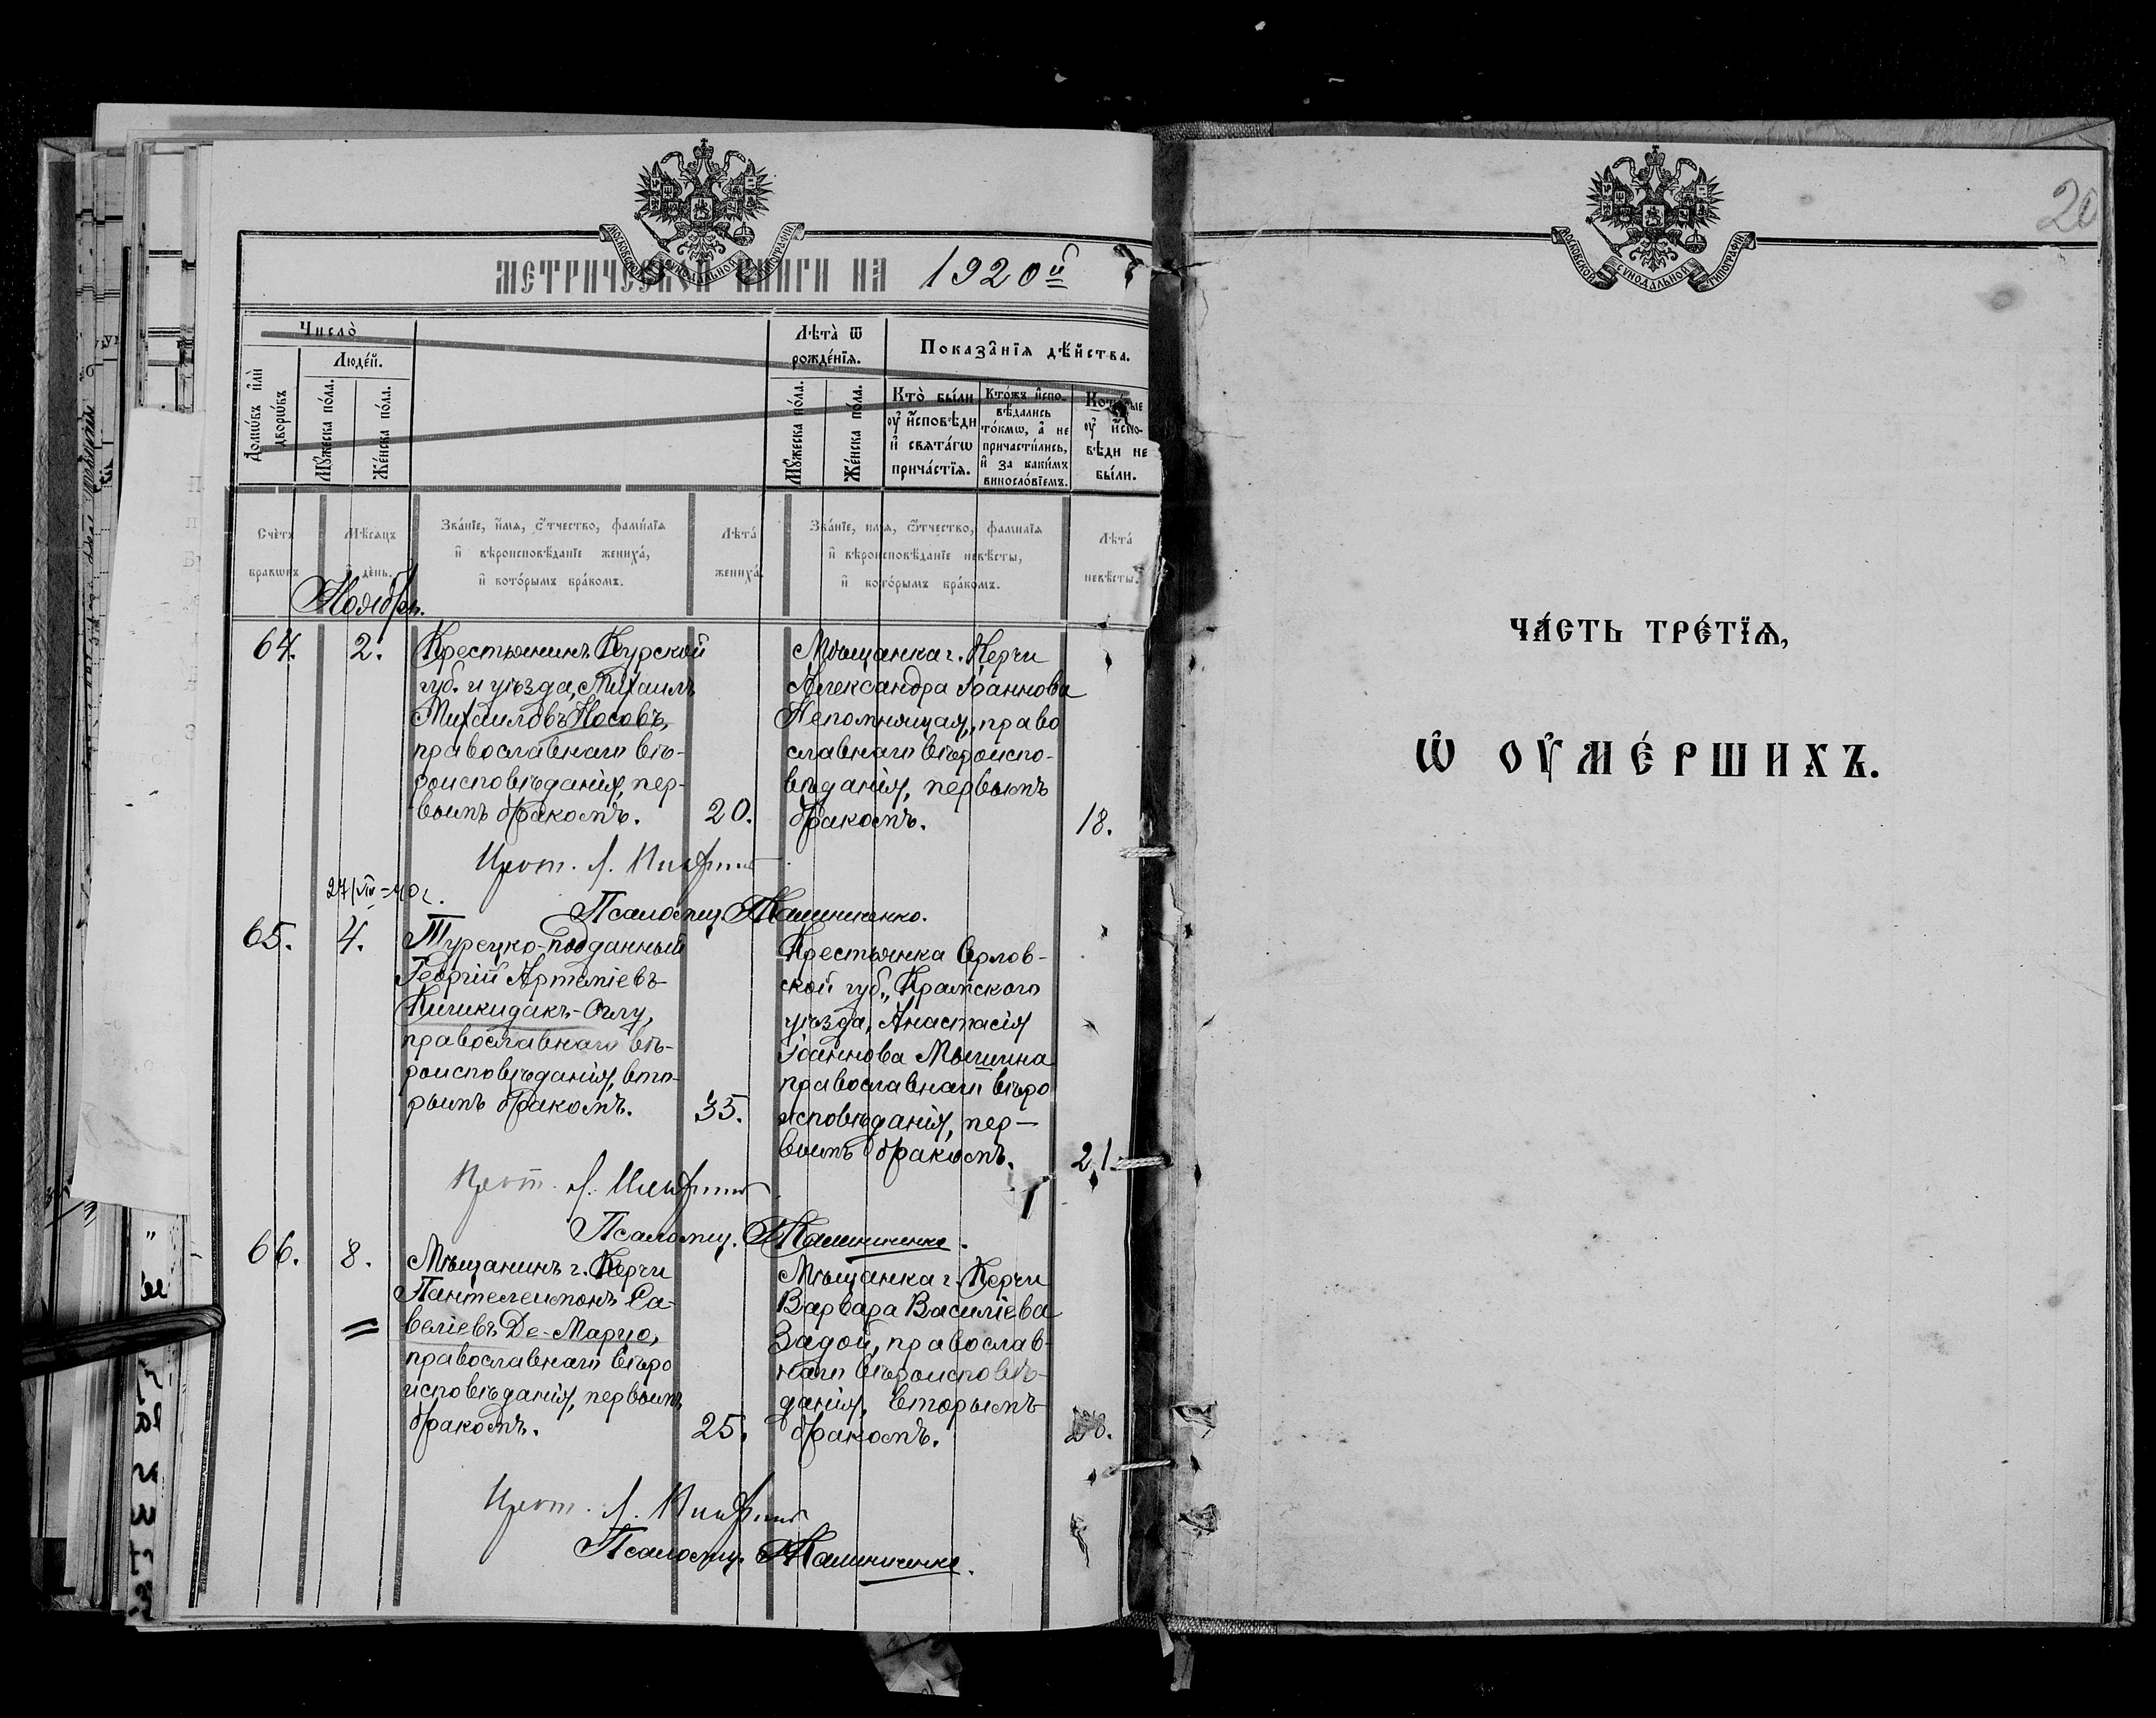 МОСКОВСКОЙ СѴНОДАЛЬНОЙ ТИПОГРАФІИ
МЕТРИЧЕСКОЙ КНИГИ НА 1920й
Число̀
Людéй.
Домѡвъ и҆лѝ дворѡвъ
Мꙋ́жеска по́ла.
Же́нска по́ла.
Лѣта̀ ѿ
рожде́нїѧ.
Мꙋ́жеска по́ла.
Же́нска по́ла.
Показа̑нїѧ дѣ́йства.
Кто̀ бы́ли
оу҆ и҆сповѣди
и҆ свѧта́гѡ
прича́стїѧ.
Кто́жъ и҆спо-
вѣ́дались
то́кмѡ, а҆ не
причасти́лись,
и҆ за каки́мъ
винослóвїемъ.
Кото́рые
оу҆ и҆спо-
вѣди не
бы́ли.
Сче́тъ
бракѡвъ
Мѣ́сѧцъ
и҆ де́нь.
Зва́нїе, и҆́мѧ, ѻ҆́тчество, фами́лїѧ
и҆ вѣроисповѣ́данїе жениха̀,
и҆ кото́рымъ бра́комъ.
Лѣта̀
жениха̀.
Зва́нїе, и҆́мѧ, ѻ҆́тчество, фами́лїѧ
и҆ вѣроисповѣ́данїе невѣ́сты,
и҆ кото́рымъ бра́комъ.
Лѣта̀
невѣ́сты.
Ноябрь.
64.
2.
Крестьянинъ Курской
губ. и уѣзда, Михаилъ
Михаиловъ Носовъ,
православнаго вѣ-
роисповѣданія, пер-
вымъ бракомъ.
20.
Мѣщанка г. Керчи
Александра Іоаннова
Непомнящая, право
славнаго вѣроиспо-
вѣданія, первымъ
бракомъ.
18.
Прот. Л.
Псаломщ. Калиниченко.
27/VIII-40г.
65.
4.
Турецко-подданный
Георгій Артеміевъ
Кичикидакъ-Оглу,
православнаго вѣ-
роисповѣданія, вто-
рымъ бракомъ.
35.
Крестьянка Орлов-
ской губ., Крамского
уѣзда, Анастасія
Іоаннова Мышина
православнаго вѣро
исповѣданія, пер-
вымъ бракомъ.
21.
Прот. Л.
Псаломщ. Калиниченко.
66.
8.
Мѣщанинъ г. Керчи
Пантелеимонъ Са-
веліевъ Де-Марцо,
православнаго вѣро
исповѣданія, первымъ
бракомъ.
25.
Мѣщанка г. Керчи
Варвара Василіева
Задой, православ-
наго вѣроисповѣ-
данія, вторымъ
бракомъ.
Прот. Л.
Псаломщ. Калиниченко.
20
МОСКОВСКОЙ СѴНОДАЛЬНОЙ ТИПОГРАФІИ
ЧА́СТЬ ТРЕ́ТЇѦ,
Ѡ҆ ОУ҆МЕ́РШИХЪ.